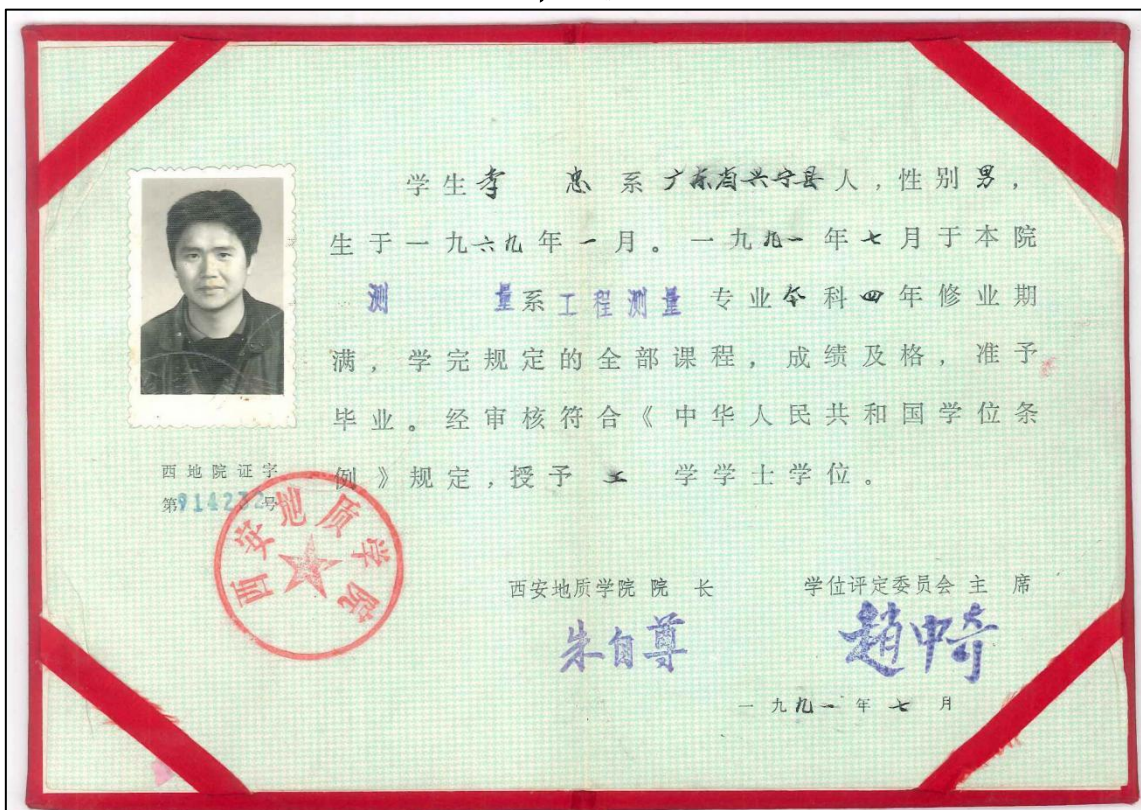 学生李 忠 系广东省兴宁县人，性别男，
生于一九六九年一月。一九九一年七月于本院
测 量系工程测量专业本科四年修业期
满，学完规定的全部课程，成绩及格，准予
毕业。经审核符合《中华人民共和国学位条
例》规定，授予 工 学学士学位。
西地院证字
第914232号
西安地质学院
西安地质学院 院 长 学位评定委员会 主 席
朱自尊 趙中奇
一九九一年七月